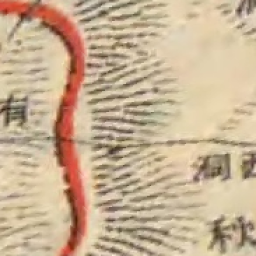 有
洞西
秋